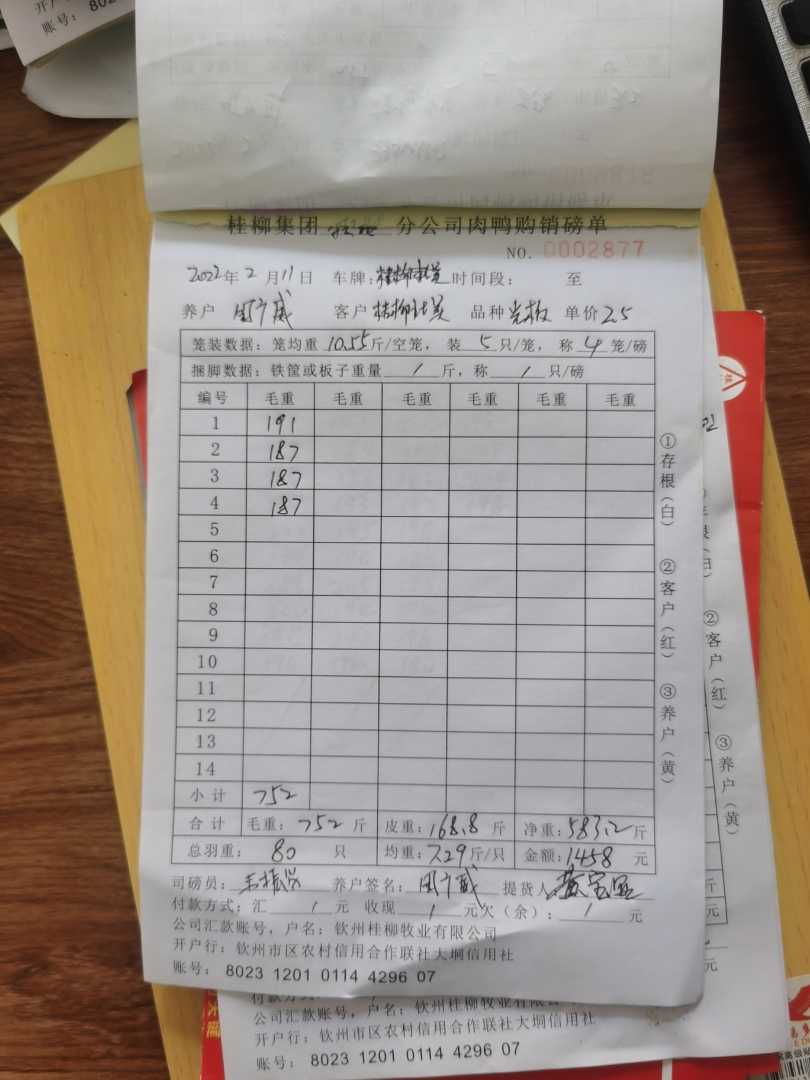 开户
账号: 802
桂柳集团 分公司肉鸭购销磅单
NO. 0002877
2022年 2 月 11 日 车牌: 桂柳 时间段: 至
养户 周广威 客户 桂柳 品种 光板 单价 2.5
笼装数据: 笼均重 10.55 斤/空笼, 装 5 只/笼, 称 4 笼/磅
捆脚数据: 铁筐或板子重量 / 斤, 称 / 只/磅
编号 毛重 毛重 毛重 毛重 毛重 毛重
1 191
2 187
3 187
4 187
5
6
7
8
9
10
11
12
13
14
小计 752
合计 毛重: 752 斤 皮重: 168.8 斤 净重: 583.2 斤
总羽重: 80 只 均重: 7.29 斤/只 金额: 1458 元
司磅员: 养户签名: 周广威 提货人
付款方式: 汇 / 元 收现 / 元欠(余): / 元
公司汇款账号, 户名: 钦州桂柳牧业有限公司
开户行: 钦州市区农村信用合作联社大垌信用社
账号: 8023 1201 0114 4296 07
①存根(白)
②客户(红)
③养户(黄)
②客户(红)
③养户(黄)
斤
元
元
付款方
公司汇款账号, 户名: 钦州桂柳牧业有限公
开户行: 钦州市区农村信用合作联社大垌信用社
账号: 8023 1201 0114 4296 07